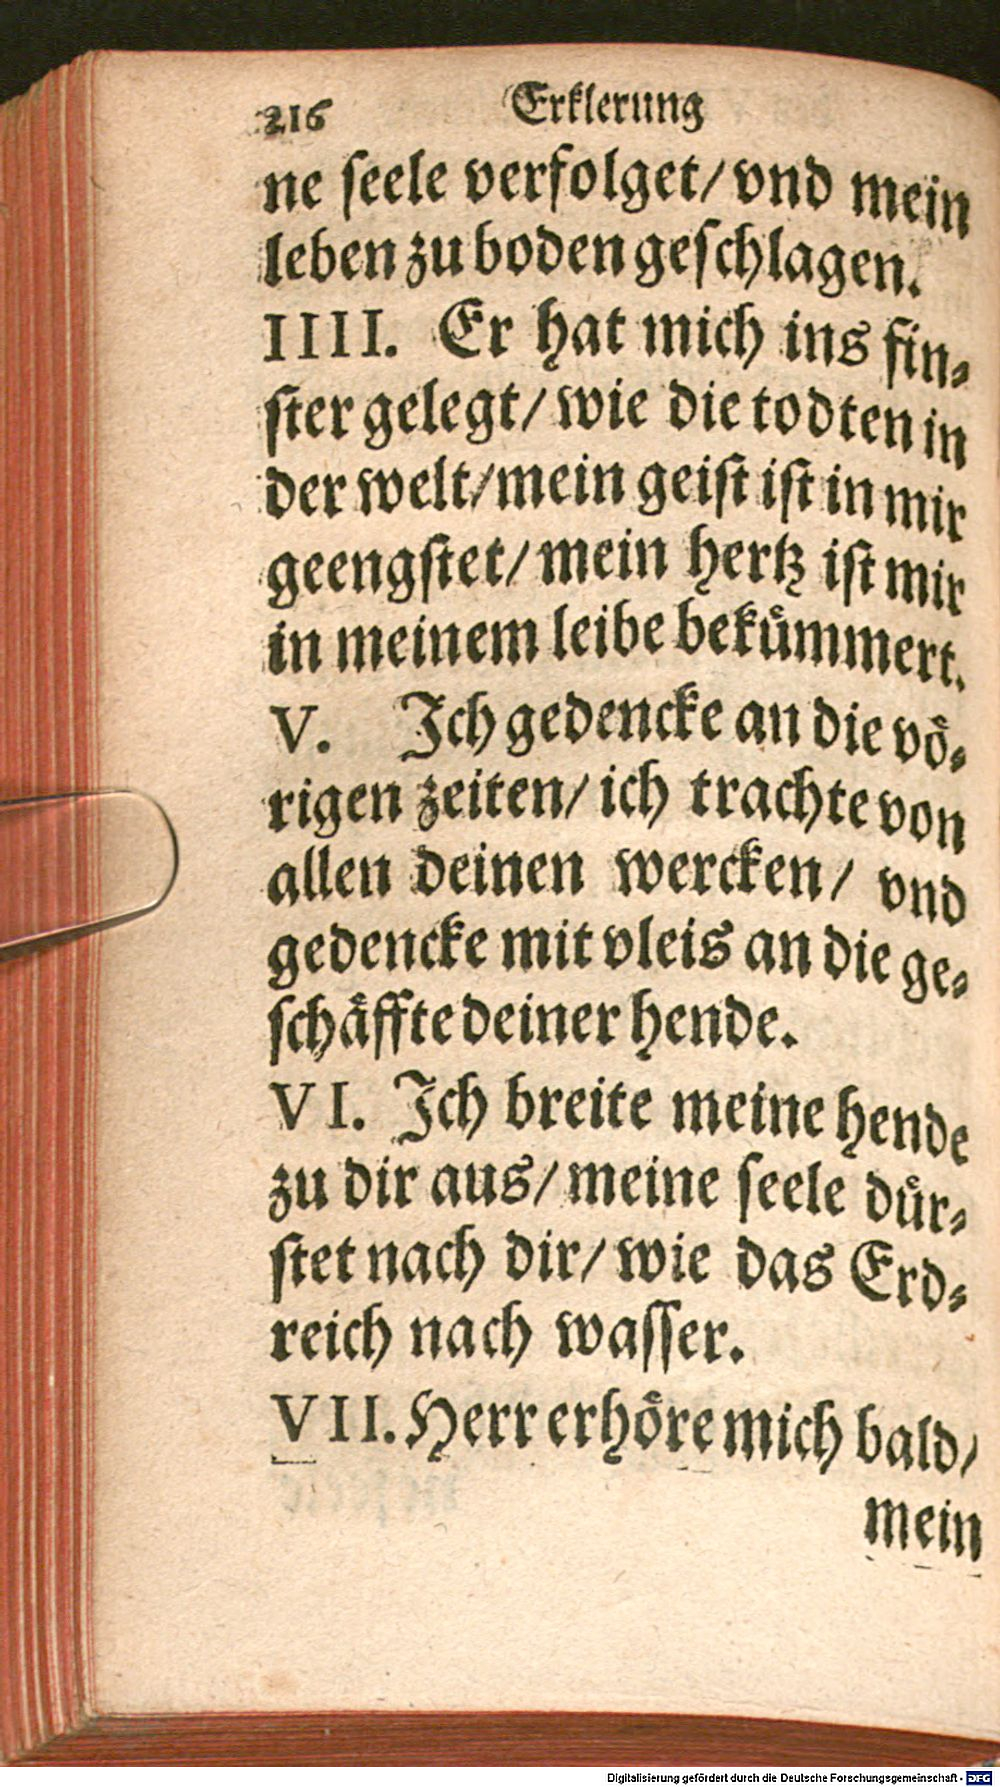 216 Erklerung
ne ſeele verfolget/ vnd mein
leben zu boden geſchlagen.
IIII. Er hat mich ins fin⸗
ſter gelegt/ wie die todten in
der welt/ mein geiſt iſt in mir
geengſtet/ mein hertz iſt mir
in meinem leibe bekuͤmmert.
V. Ich gedencke an die voͤ⸗
rigen zeiten/ ich trachte von
allen deinen wercken/ vnd
gedencke mit vleis an die ge⸗
ſchaͤffte deiner hende.
VI. Ich breite meine hende
zu dir aus/ meine ſeele duͤr⸗
ſtet nach dir/ wie das Erd⸗
reich nach waſſer.
VII. Herr erhoͤre mich bald/
mein
Digitalisierung gefördert durch die Deutsche Forschungsgemeinschaft - DFG